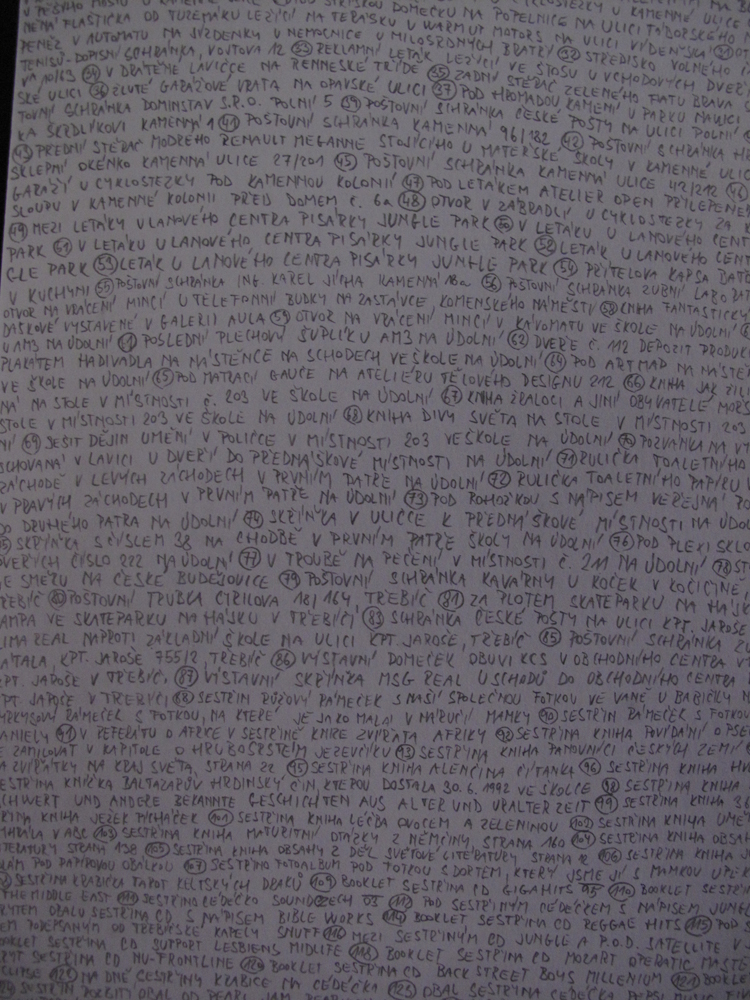 V PĚŠÍHO MOSTU U KAMENNÉ
NĚMÁ PLASTIČKA OD TUZEMÁKU LEŽÍCÍ NA TERASKU U WARMUT MOTORS NA ULICI TÁBORSKÉHO
PENĚZ V AUTOMATU NA JÍZDENKY U NEMOCNICE U MILOSRDNÝCH BRATRŮ
TENISU-DOPISNÍ SCHRÁNKA, VOJTOVA 12 REKLAMNÍ LETÁK LEŽÍCÍ VE STOSU U VCHODOVÝCH DVEŘÍ
V DRÁTĚNÉ LAVIČCE NA RENNESKÉ TŘÍDĚ 35 ZADNÍ STĚRAČ ZELENÉHO FIATU BRAVA
SKÉ ULICI 36 ŽLUTÉ GARÁŽOVÉ VRATA NA OPAVSKÉ ULICI 37 POD HROMADOU KAMENÍ U PARKU NA ULICI
TOVNÍ SCHRÁNKA DOMINSTAV S.R.O. POLNÍ 5 39 POŠTOVNÍ SCHRÁNKA ČESKÉ POŠTY NA ULICI POLNÍ
KA ŠKRDLÍKOVI KAMENNÁ 1 41 POŠTOVNÍ SCHRÁNKA KAMENNÁ 96/182 42 POŠTOVNÍ SCHRÁNKA
43 PŘEDNÍ STĚRAČ MODRÉHO RENAULT MEGANNE STOJÍCÍHO U MATEŘSKÉ ŠKOLY V KAMENNÉ ULICI
SKLEPNÍ OKÉNKO KAMENNÁ ULICE 27/201 45 POŠTOVNÍ SCHRÁNKA KAMENNÁ ULICE 42/212 46
GARÁŽÍ U CYKLOSTEZKY POD KAMENNOU KOLONIÍ 47 POD LETÁKEM ATELIER OPEN PŘILEPENÉM
SLOUPU V KAMENNÉ KOLONII PŘED DOMEM Č. 6a 48 OTVOR V ZÁBRADLÍ U CYKLOSTEZKY ZA
49 MEZI LETÁKY U LANOVÉHO CENTRA PISÁRKY JUNGLE PARK 50 V LETÁKU U LANOVÉHO
PARK 51 V LETÁKU U LANOVÉHO CENTRA PISÁRKY JUNGLE PARK 52 LETÁK U LANOVÉHO
GLE PARK 53 LETÁK U LANOVÉHO CENTRA PISÁRKY JUNGLE PARK 54 PŘÍTELOVA KAPSA
V KUCHYNI 55 POŠTOVNÍ SCHRÁNKA ING. KAREL JÍCHA KAMENNÁ 18a 56 POŠTOVNÍ SCHRÁNKA ZUBNÍ
OTVOR NA VRÁCENÍ MINCÍ U TELEFONNÍ BUDKY NA ZASTÁVCE KOMENSKÉHO NÁMĚSTÍ 58 KNIHA FANTASTICKÝ
DÁŠKOVÉ VYSTAVENÉ V GALERII AULA 59 OTVOR NA VRÁCENÍ MINCÍ V KÁVOMATU VE ŠKOLE NA ÚDOLNÍ
U AM3 NA ÚDOLNÍ 61 POSLEDNÍ PLECHOVÝ ŠUPLÍK U AM3 NA ÚDOLNÍ 62 DVEŘE Č. 112 DEPOZIT
PLAKÁTEM HADIVADLA NA NÁSTĚNCE NA SCHODECH VE ŠKOLE NA ÚDOLNÍ 64 POD ARTMAP NA
VE ŠKOLE NA ÚDOLNÍ 65 POD MATRACÍ GAUČE NA ATELIERU TĚLOVÉHO DESIGNU 212 66 KNIHA JAK
NA STOLE V MÍSTNOSTI Č. 203 VE ŠKOLE NA ÚDOLNÍ 67 KNIHA ŽRALOCI A JINÍ OBYVATELÉ
STOLE V MÍSTNOSTI 203 VE ŠKOLE NA ÚDOLNÍ 68 KNIHA DIVY SVĚTA NA STOLE V MÍSTNOSTI 203
NÍ 69 SEŠIT DĚJIN UMĚNÍ V POLIČCE V MÍSTNOSTI 203 VE ŠKOLE NA ÚDOLNÍ 70 POZVÁNKA NA
SCHOVANÁ V LAVICI U DVEŘÍ DO PŘEDNÁŠKOVÉ MÍSTNOSTI NA ÚDOLNÍ 71 RULIČKA TOALETNÍHO
ZÁCHODĚ V LEVÝCH ZÁCHODECH V PRVNÍM PATŘE NA ÚDOLNÍ 72 RULIČKA TOALETNÍHO PAPÍRU
V PRAVÝCH ZÁCHODECH V PRVNÍM PATŘE NA ÚDOLNÍ 73 POD ROHOŽKOU S NÁPISEM VEŘEJNÁ
DO DRUHÉHO PATRA NA ÚDOLNÍ 74 SKŘÍŇKA V ULIČCE K PŘEDNÁŠKOVÉ MÍSTNOSTI NA
75 SKŘÍŇKA S ČÍSLEM 38 NA CHODBĚ V PRVNÍM PATŘE ŠKOLY NA ÚDOLNÍ 76 POD PLEXI
ČÍSLO 222 NA ÚDOLNÍ 77 V TROUBĚ NA PEČENÍ V MÍSTNOSTI Č. 211 NA ÚDOLNÍ 78
VE SMĚRU NA ČESKÉ BUDĚJOVICE 79 POŠTOVNÍ SCHRÁNKA KAVÁRNY U KOČEK V KOČIČINĚ
TŘEBÍČ 80 POŠTOVNÍ TRUBKA CYRILOVA 18/164 TŘEBÍČ 81 ZA PLOTEM SKATEPARKU NA
RAMPA VE SKATEPARKU NA HÁJKU V TŘEBÍČI 83 SCHRÁNKA ČESKÉ POŠTY NA ULICI KPT. JAROŠE
LIMA REAL NAPROTI ZÁKLADNÍ ŠKOLE NA ULICI KPT. JAROŠE, TŘEBÍČ 85 POŠTOVNÍ SCHRÁNKA
KPT. JAROŠE 755/2, TŘEBÍČ 86 VÝSTAVNÍ DOMEČEK OBUVI KCS V OBCHODNÍHO CENTRA
KPT. JAROŠE V TŘEBÍČI, 87 VÝSTAVNÍ SKŘÍŇKA MSG REAL U SCHODŮ DO OBCHODNÍHO CENTRA
KPT. JAROŠE V TŘEBÍČI 88 SESTŘIN RŮŽOVÝ RÁMEČEK S NAŠÍ SPOLEČNOU FOTKOU VE VANĚ U BABIČKY
TYRKYSOVÝ RÁMEČEK S FOTKOU, NA KTERÉ JE JAKO MALÁ V NÁRUČÍ MAMKY 90 SESTŘIN RÁMEČEK S FOTKOU
DANIELY 91 V REFERÁTU O AFRICE V SESTŘINĚ KNIZE ZVÍŘATA AFRIKY 92 SESTŘINA KNIHA POVÍDÁNÍ O
SE ZAMILOVAT V KAPITOLE O HRUBOSRSTÉM JEZEVČÍKU 93 SESTŘINA KNIHA PANOVNÍCI ČESKÝCH ZEMÍ
ZA ZVÍŘÁTKY NA KRAJ SVĚTA, STRANA 22 95 SESTŘINA KNIHA ALENČINA ČÍTANKA 96 SESTŘINA KNIHA
SESTŘINA KNÍŽKA BALTAZARŮV HRDINSKÝ ČIN, KTEROU DOSTALA 30.6.1992 VE ŠKOLCE 98 SESTŘINA KNIHA
SCHWERT UND ANDERE BEKANNTE GESCHICHTEN AUS ALTER UND URALTER ZEIT 99 SESTŘINA KNIHA
KNIHA JEŽEK PICHÁČEK 101 SESTŘINA KNIHA LÉČBA OVOCEM A ZELENINOU 102 SESTŘINA KNIHA
V ABC 103 SESTŘINA KNIHA MATURITNÍ OTÁZKY Z NĚMČINY, STRANA 160 104 SESTŘINA KNIHA
LITERATURY STRANA 138 105 SESTŘINA KNIHA OBSAHY Z DĚL SVĚTOVÉ LITERATURY STRANA 106 SESTŘINA KNIHA
POD PAPÍROVOU OBÁLKOU 107 SESTŘINO FOTOALBUM POD FOTKOU S DORTEM, KTERÝ JSME JÍ S MAMKOU
SESTŘINA KRABIČKA TAROT KELTSKÝCH DRAKŮ 109 BOOKLET SESTŘINA CD GIGAHITS 95 110 BOOKLET
THE MIDDLE EAST 111 SESTŘINO CÉDÉČKO SOUNDCZECH 03 112 POD SESTŘINÝM CÉDÉČKEM S NÁPISEM
OBALU SESTŘINA CD S NÁPISEM BIBLE WORKS 114 BOOKLET SESTŘINA CD REGGAE HITS 115 POD
PODEPSANÝM OD TŘEBÍČSKÉ KAPELY SNUFF 116 MEZI SESTŘINÝM CD JUNGLE A P.O.D. SATELLITE
BOOKLET SESTŘINA CD SUPPORT LESBIENS MIDLIFE 118 BOOKLET SESTŘINA CD MOZART OPERATIC
SESTŘINA CD NU-FRONTLINE 120 BOOKLET SESTŘINA CD BACKSTREET BOYS MILLENIUM 121
122 NA DNĚ SESTŘINY KRABICE NA CÉDÉČKA 123 OBAL SESTŘINA CÉDÉČKA
OBAL OD PEARL JAM